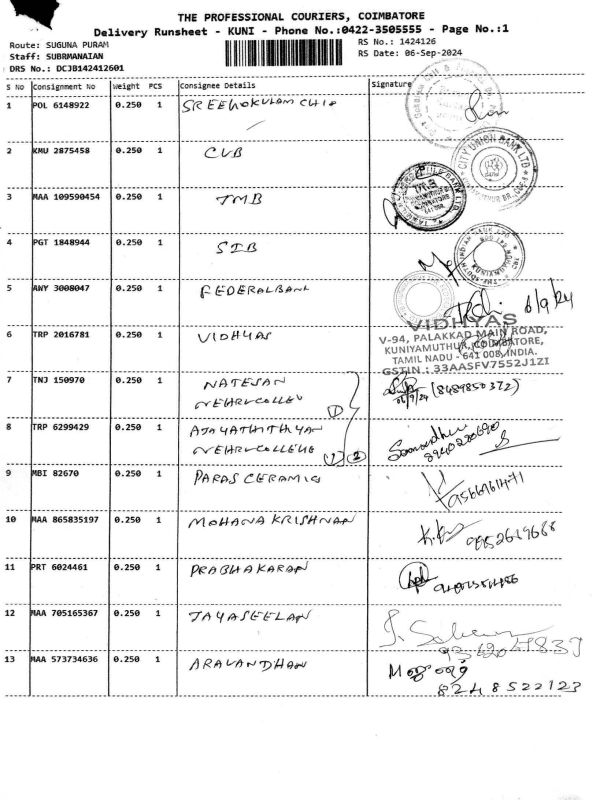 THE PROFESSIONAL COURIERS, COIMBATORE
Delivery Runsheet - KUNI - Phone No.:0422-3505555 - Page No.:1
Route: SUGUNA PURAM
Staff: SUBRMANAIAN
DRS No.: DCJB142412601
RS No.: 1424126
RS Date: 06-Sep-2024
S No Consignment No Weight PCS Consignee Details Signature
1 POL 6148922 0.250 1 SREEGOKULAM CHIT
2 KMU 2875458 0.250 1 CUB
CITY UNION BANK LTD
3 MAA 109590454 0.250 1 TMB
4 PGT 1848944 0.250 1 SIB
5 AWY 3008047 0.250 1 FEDERAL BANK
6/9/24
6 TRP 2016781 0.250 1 VIDHYAS
VIDHYAS
V-94, PALAKKAD MAIN ROAD,
KUNIYAMUTHUR, COIMBATORE,
TAMIL NADU - 641 008, INDIA.
GSTIN : 33AASFV7552J1ZI
7 TNJ 150970 0.250 1 NATESAN
NEHRU COLLEGE
1
06/9/24 (8489850372)
8 TRP 6299429 0.250 1 AJAYATHITHYAN
NEHRU COLLEGE
1 2
9 MBI 82670 0.250 1 PARAS CERAMIC
10 MAA 865835197 0.250 1 MOHANA KRISHNAN
11 PRT 6024461 0.250 1 PRABHAKARAN
12 MAA 705165367 0.250 1 JAYASEELAN
13 MAA 573734636 0.250 1 ARAVANDHAN
8248522123